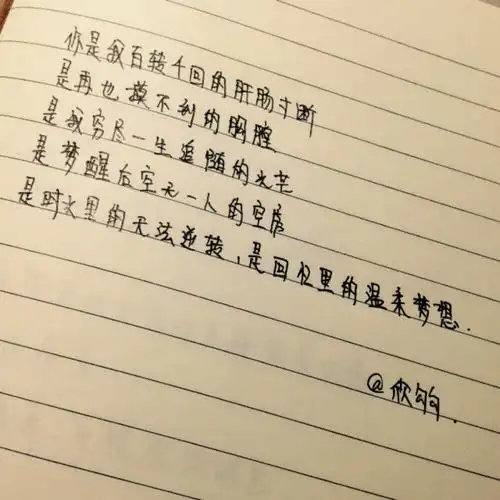 你是我百转千回的肝肠寸断
是再也摸不到的胸膛
是我穷尽一生追随的光芒
是梦醒后空无一人的空房
是时光里的无法逆转,是回忆里的温柔梦想.
@